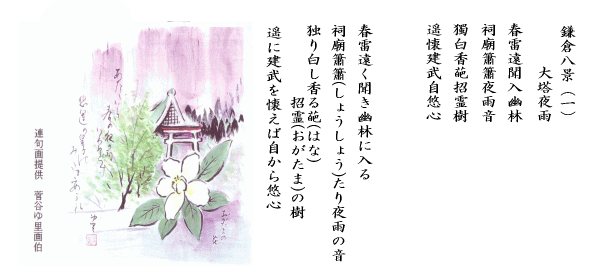 鎌倉八景(一)
大塔夜雨
春雷遠聞入幽林
祠廟簫簫夜雨音
獨白香葩招霊樹
遥懐建武自悠心
春雷遠く聞き幽林に入る
祠廟簫簫(しょうしょう)たり夜雨の音
独り白し香る葩(はな)
招霊(おがたま)の樹
遥に建武を懐えば自から悠心
連句画提供 菅谷ゆ里画伯